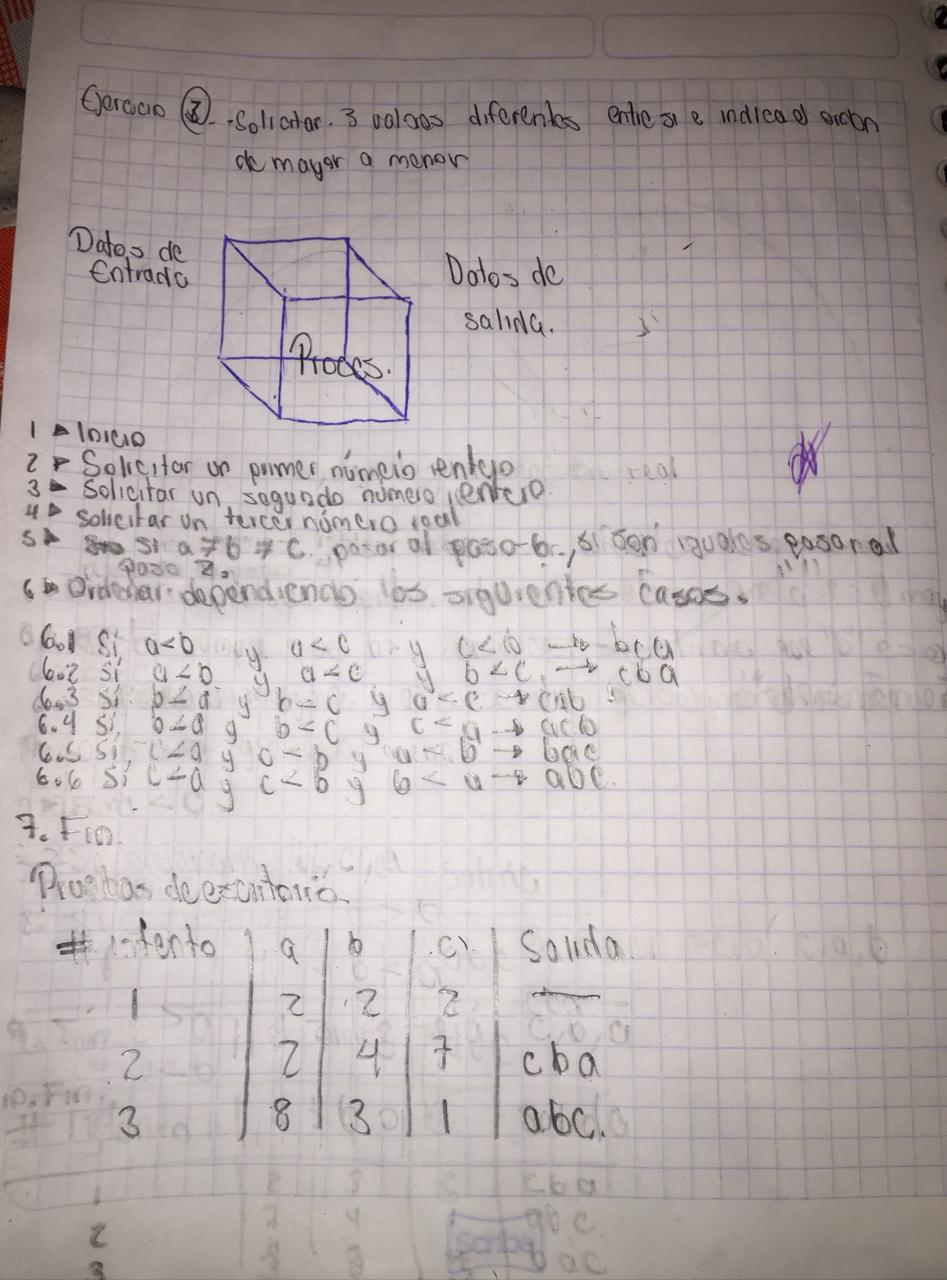 Ejercicio ③.- Solicitar 3 valores diferentes entre si e indica el orden
de mayor a menor
Datos de
Entrada
Proces.
Datos de
salida.
1 ► Inicio
2 ► Solicitar un primer número entero
3 ► Solicitar un segundo número entero
4 ► solicitar un tercer número real
5 ► si a ≠ b ≠ c. pasar al paso 6., si son iguales pasar al
paso 2.
6 ► Ordenar dependiendo los siguientes casos.
6.1 Si a<b y a<c y c<b → bca
6.2 Si a<b y a<c y b<c → cba
6.3 Si b<a y b<c y a<c → cab
6.4 Si b<a y b<c y c<a → acb
6.5 Si c<a y c<b y a<b → bac
6.6 Si c<a y c<b y b<a → abc.
7. Fin.
Pruebas de escritorio
# intento a b c Salida
1 2 2 2 —
2 2 4 7 cba
3 8 3 1 abc.
Scribe